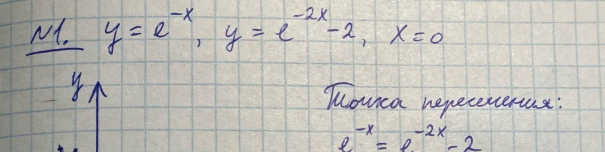 №1. y = e^{-x}, y = e^{-2x} - 2, x = 0
y
Точка пересечения:
e^{-x} = e^{-2x} - 2